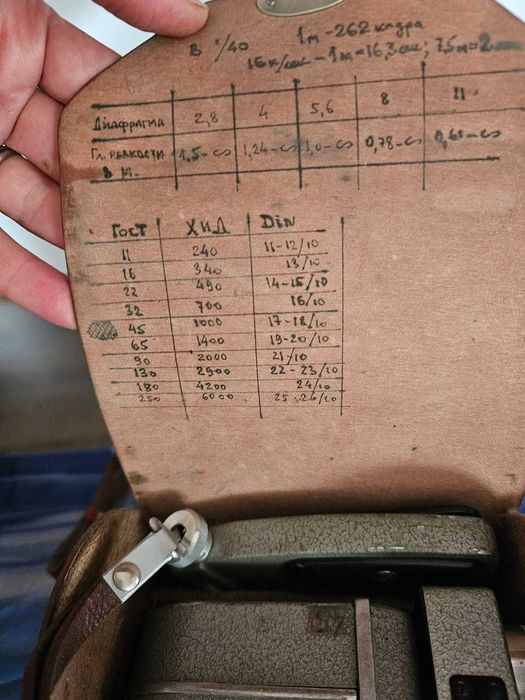 В 1/40 1м-262 кадра
16к/сек - 1м=16,3 сек; 7,5м=2
Диафрагма 2,8 4 5,6 8 11
Гл. резкости в м. 1,5-∞ 1,24-∞ 1,0-∞ 0,78-∞
ГОСТ ХИД Din
11 240 11-12/10
16 340 13/10
22 490 14-15/10
32 700 16/10
45 1000 17-18/10
65 1400 19-20/10
90 2000 21/10
130 2900 22-23/10
180 4200 24/10
250 6000 25-26/10